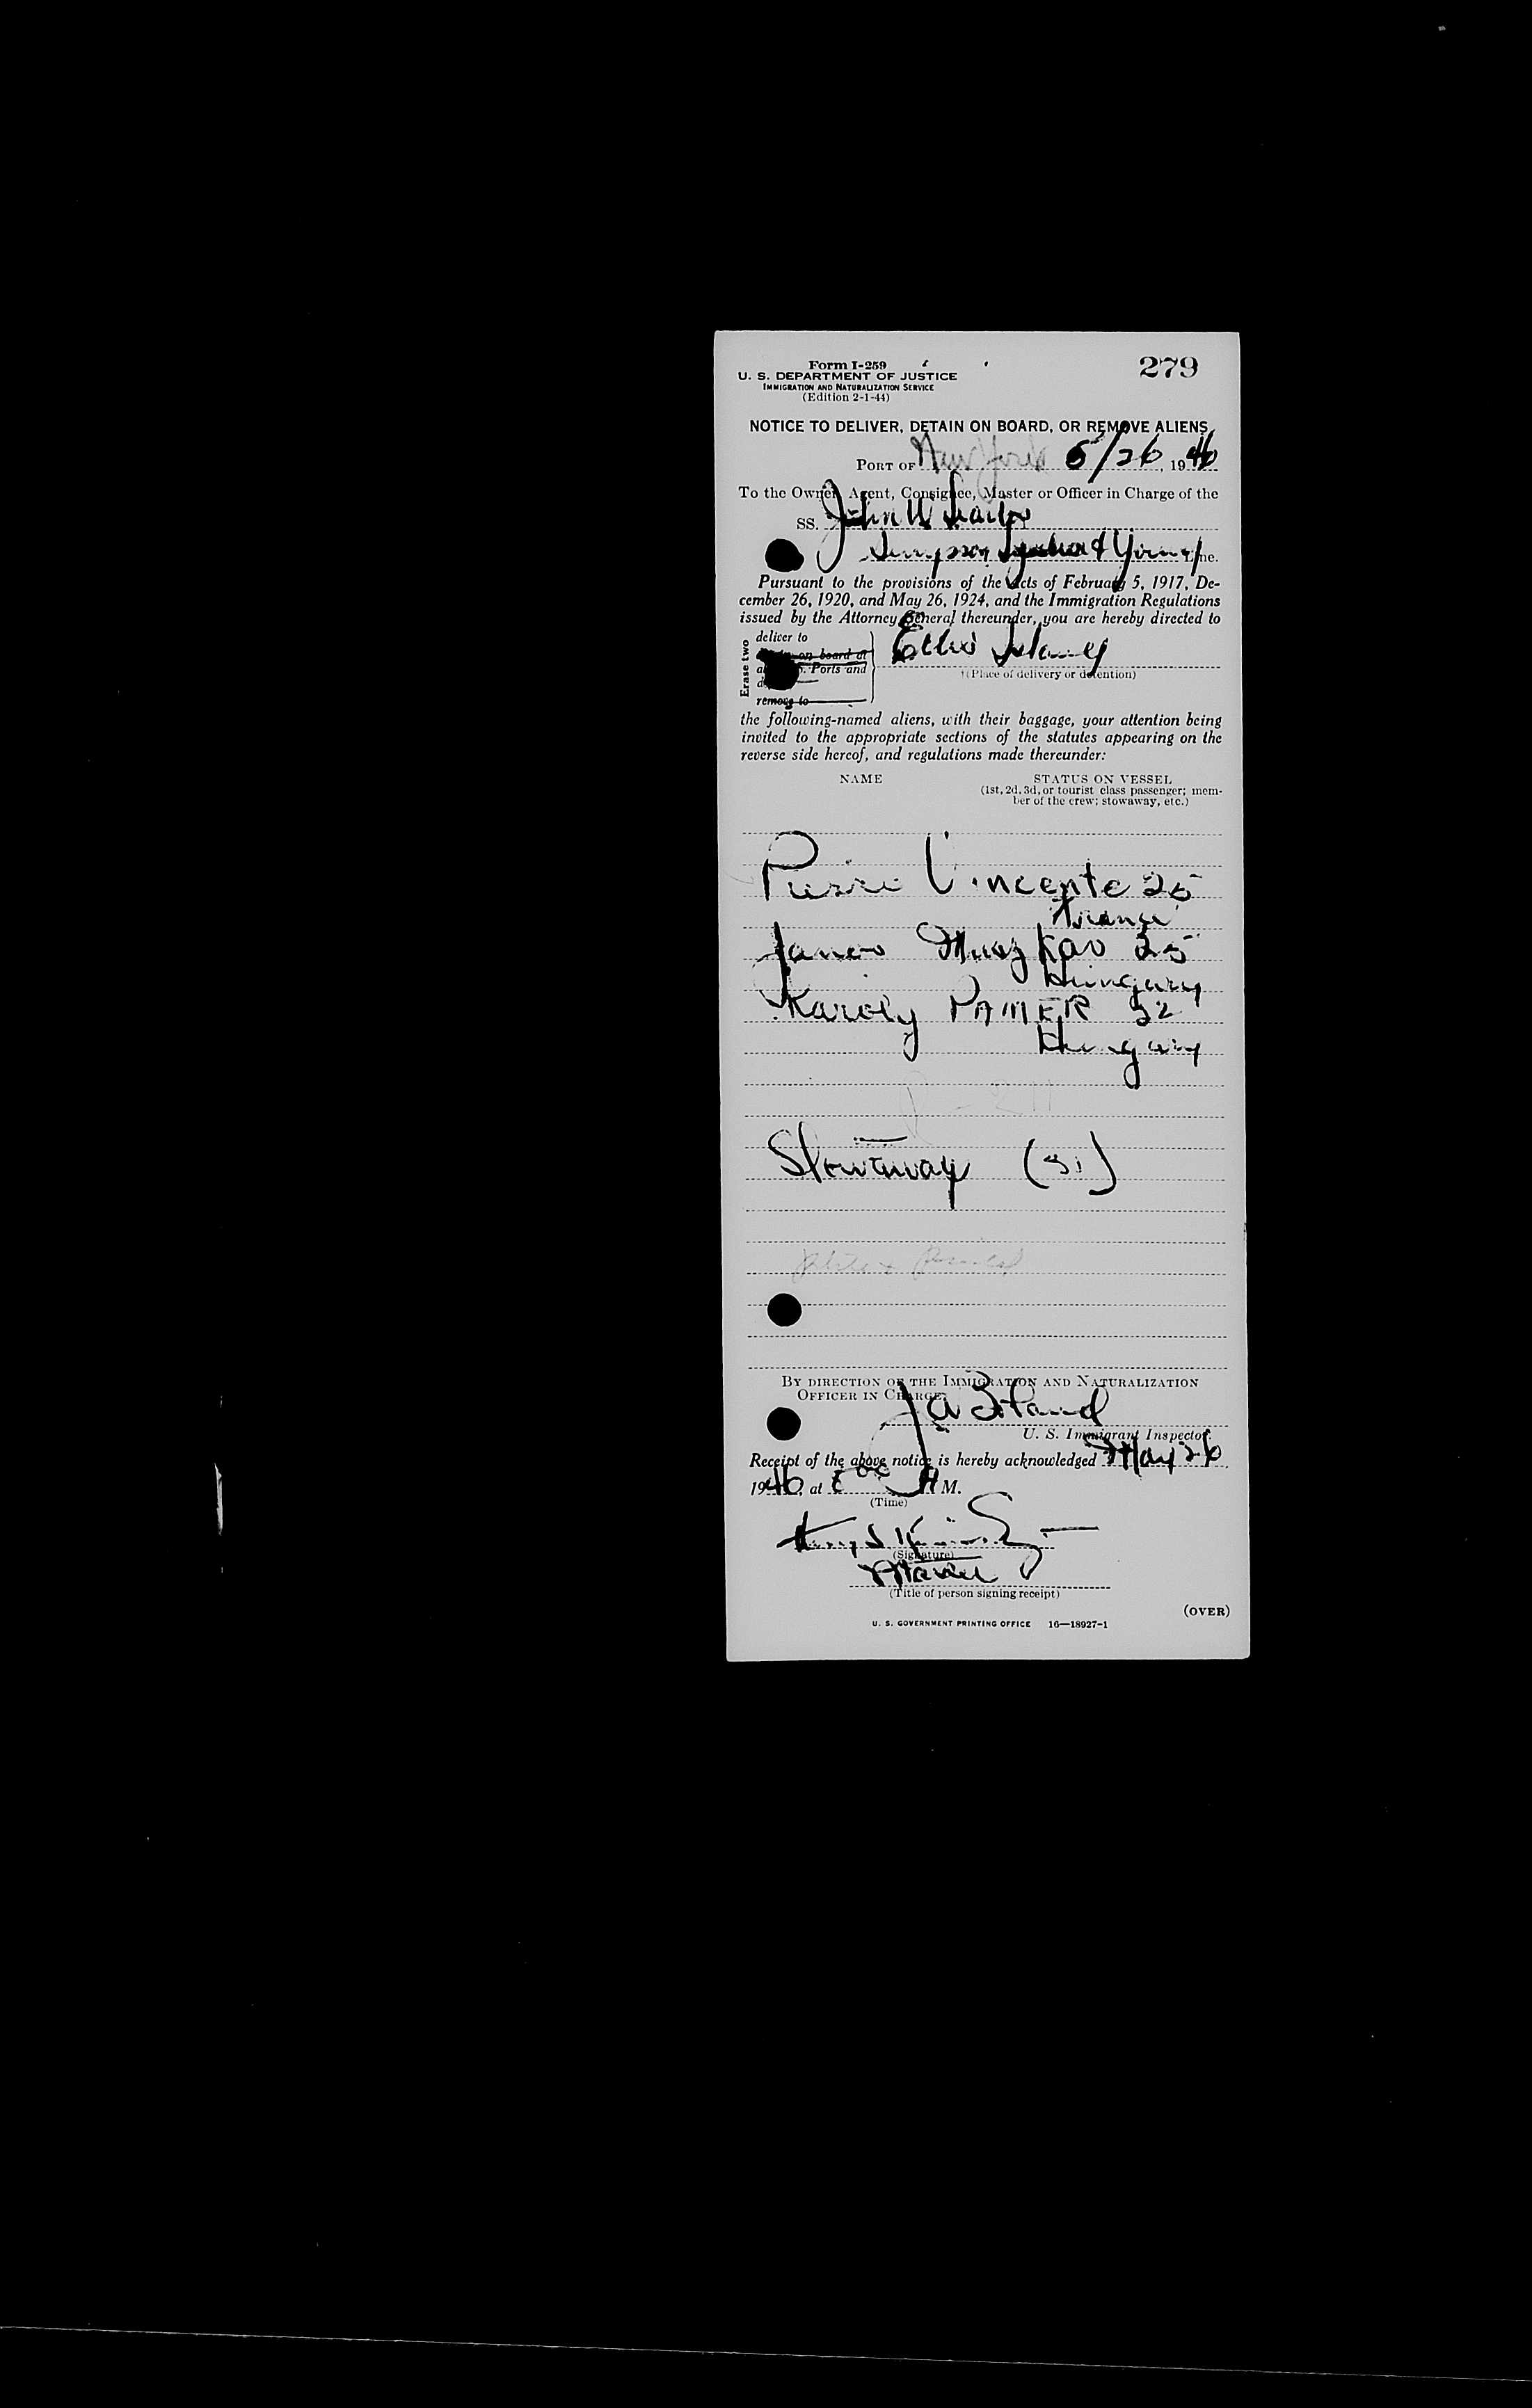 Form I-259
279
U. S. DEPARTMENT OF JUSTICE
IMMIGRATION AND NATURALIZATION SERVICE
(Edition 2-1-44)
NOTICE TO DELIVER, DETAIN ON BOARD, OR REMOVE ALIENS
PORT OF New York 5/26, 1946
To the Owner, Agent, Consignee, Master or Officer in Charge of the
SS. John W
Simpson & Young Line.
Pursuant to the provisions of the Acts of February 5, 1917, De-
cember 26, 1920, and May 26, 1924, and the Immigration Regulations
issued by the Attorney General thereunder, you are hereby directed to
Erase two
deliver to
on board at
Ports and
remove to
Ellis Island
(Place of delivery or detention)
the following-named aliens, with their baggage, your attention being
invited to the appropriate sections of the statutes appearing on the
reverse side hereof, and regulations made thereunder:
NAME STATUS ON VESSEL
(1st, 2d, 3d, or tourist class passenger; mem-
ber of the crew; stowaway, etc.)
Pierre Vincente 25
France
Janos 25
Hungary
Karoly PAMER 32
Hungary
Stowaway (3)
BY DIRECTION OF THE IMMIGRATION AND NATURALIZATION
OFFICER IN CHARGE:
J A Boland
U. S. Immigrant Inspector.
Receipt of the above notice is hereby acknowledged May 26,
1946, at A M.
(Time)
(Signature)
Master
(Title of person signing receipt)
(OVER)
U. S. GOVERNMENT PRINTING OFFICE 16—18927-1